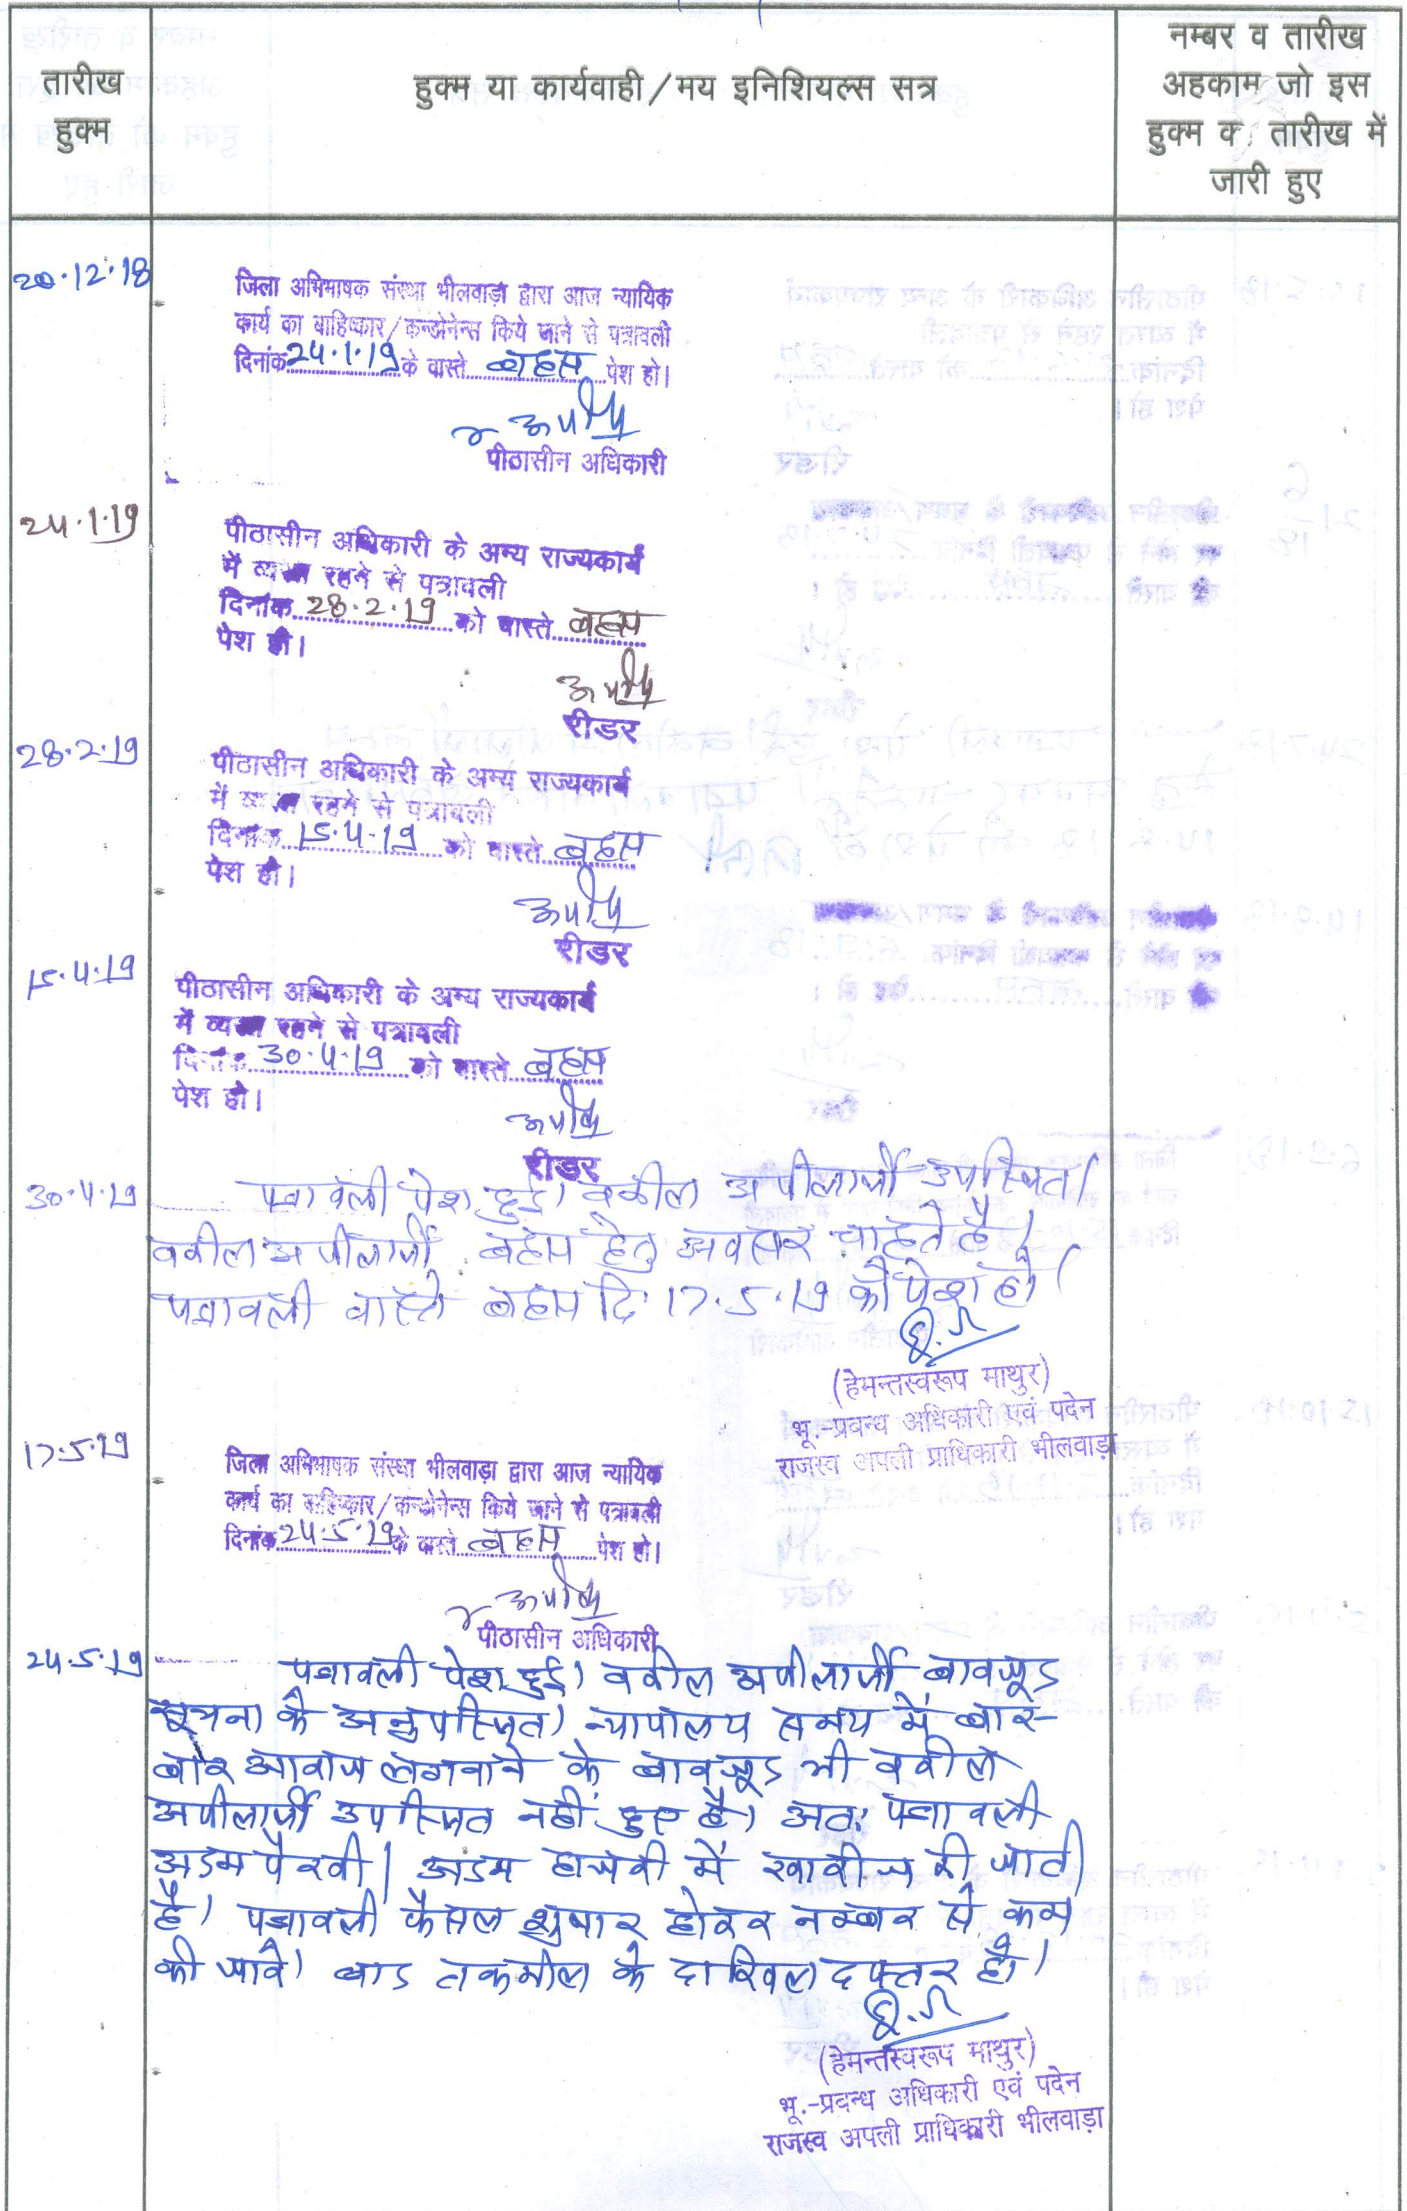 तारीख
हुक्म
हुक्म या कार्यवाही/मय इनिशियल्स सत्र
नम्बर व तारीख
अहकाम जो इस
हुक्म क तारीख में
जारी हुए
20.12.18
जिला अभिभाषक संस्था भीलवाड़ा द्वारा आज न्यायिक
कार्य का बाहिष्कार/कन्डोनेन्स किये जाने से पत्रावली
दिनांक 24.1.19 के वास्ते बहस पेश हो।
पीठासीन अधिकारी
24.1.19
पीठासीन अधिकारी के अन्य राज्यकार्य
में व्यस्त रहने से पत्रावली
दिनांक 28.2.19 को वास्ते बहस
पेश हो।
रीडर
28.2.19
पीठासीन अधिकारी के अन्य राज्यकार्य
में व्यस्त रहने से पत्रावली
दिनांक 15.4.19 को वास्ते बहस
पेश हो।
रीडर
15.4.19
पीठासीन अधिकारी के अन्य राज्यकार्य
में व्यस्त रहने से पत्रावली
दिनांक 30.4.19 को वास्ते बहस
पेश हो।
रीडर
30.4.19
पत्रावली पेश हुई। वकील अपीलार्थी उपस्थित।
वकील अपीलार्थी बहस हेतु अवसर चाहते है।
पत्रावली वास्ते बहस दि. 17.5.19 को पेश हो।
(हेमन्तस्वरूप माथुर)
भू.-प्रबन्ध अधिकारी एवं पदेन
राजस्व अपली प्राधिकारी भीलवाड़ा
17.5.19
जिला अभिभाषक संस्था भीलवाड़ा द्वारा आज न्यायिक
कार्य का बाहिष्कार/कन्डोनेन्स किये जाने से पत्रावली
दिनांक 24.5.19 के वास्ते बहस पेश हो।
पीठासीन अधिकारी
24.5.19
पत्रावली पेश हुई। वकील अपीलार्थी बावजूद
सूचना के अनुपस्थित। न्यायालय समय में बार-
बार आवाज लगवाने के बावजूद भी वकील
अपीलार्थी उपस्थित नहीं हुए है। अतः पत्रावली
अदम पैरवी। अदम हाजरी में खारीज की जाती
है। पत्रावली फैसल शुमार होकर नम्बर से कम
की जावे। बाद तकमील के दाखिल दफ्तर हो।
(हेमन्तस्वरूप माथुर)
भू.-प्रबन्ध अधिकारी एवं पदेन
राजस्व अपली प्राधिकारी भीलवाड़ा